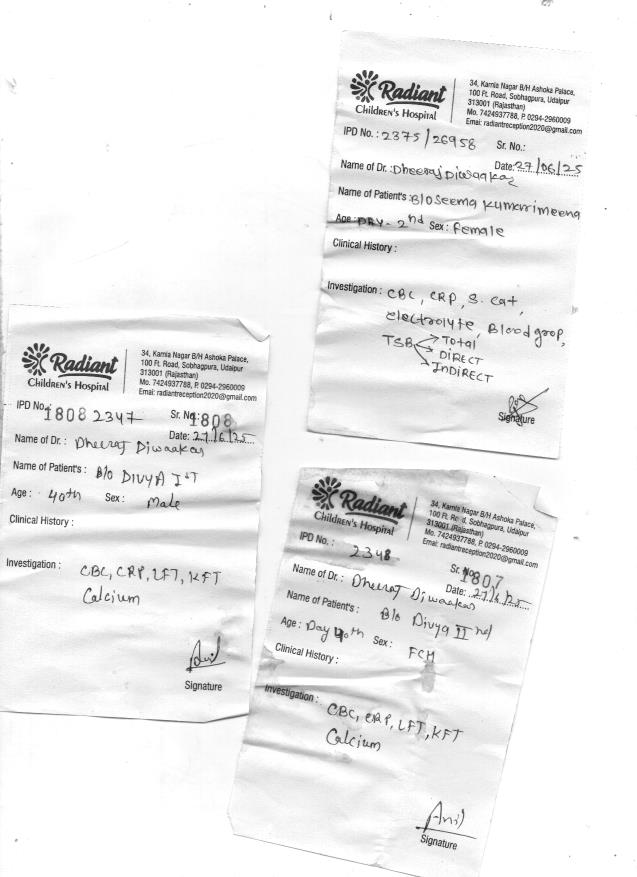 Radiant
Children's Hospital
34, Karnia Nagar B/H Ashoka Palace,
100 Ft. Road, Sobhagpura, Udaipur
313001 (Rajasthan)
Mo. 7424937788, P. 0294-2960009
Emai: radiantreception2020@gmail.com
IPD No.: 2375/26958 Sr. No.:
Date: 27/06/25
Name of Dr.: Dheeraj Diwaakar
Name of Patient's: B/o Seema Kumarimeena
Age: DAY-2nd Sex: Female
Clinical History:
Investigation: CBC, CRP, S. Cat,
electrolyte, Blood grop,
TSB Total
DIRECT
INDIRECT
Signature
Radiant
Children's Hospital
34, Karnia Nagar B/H Ashoka Palace,
100 Ft. Road, Sobhagpura, Udaipur
313001 (Rajasthan)
Mo. 7424937788, P. 0294-2960009
Emai: radiantreception2020@gmail.com
IPD No.: 1808 2347 Sr. No. 1808
Date: 27/6/25
Name of Dr.: Dheeraj Diwaakar
Name of Patient's: B/o DIVYA Ist
Age: 40th Sex: Male
Clinical History:
Investigation: CBC, CRP, LFT, KFT
Calcium
Anil
Signature
Radiant
Children's Hospital
34, Karnia Nagar B/H Ashoka Palace,
100 Ft. Road, Sobhagpura, Udaipur
313001 (Rajasthan)
Mo. 7424937788, P. 0294-2960009
Emai: radiantreception2020@gmail.com
IPD No.: 2348 Sr. No. 1807
Date: 27/6/25
Name of Dr.: Dheeraj Diwaakar
Name of Patient's: B/o Divya II nd
Age: Day 40th Sex: FCH
Clinical History:
Investigation: CBC, CRP, LFT, KFT
Calcium
Anil
Signature